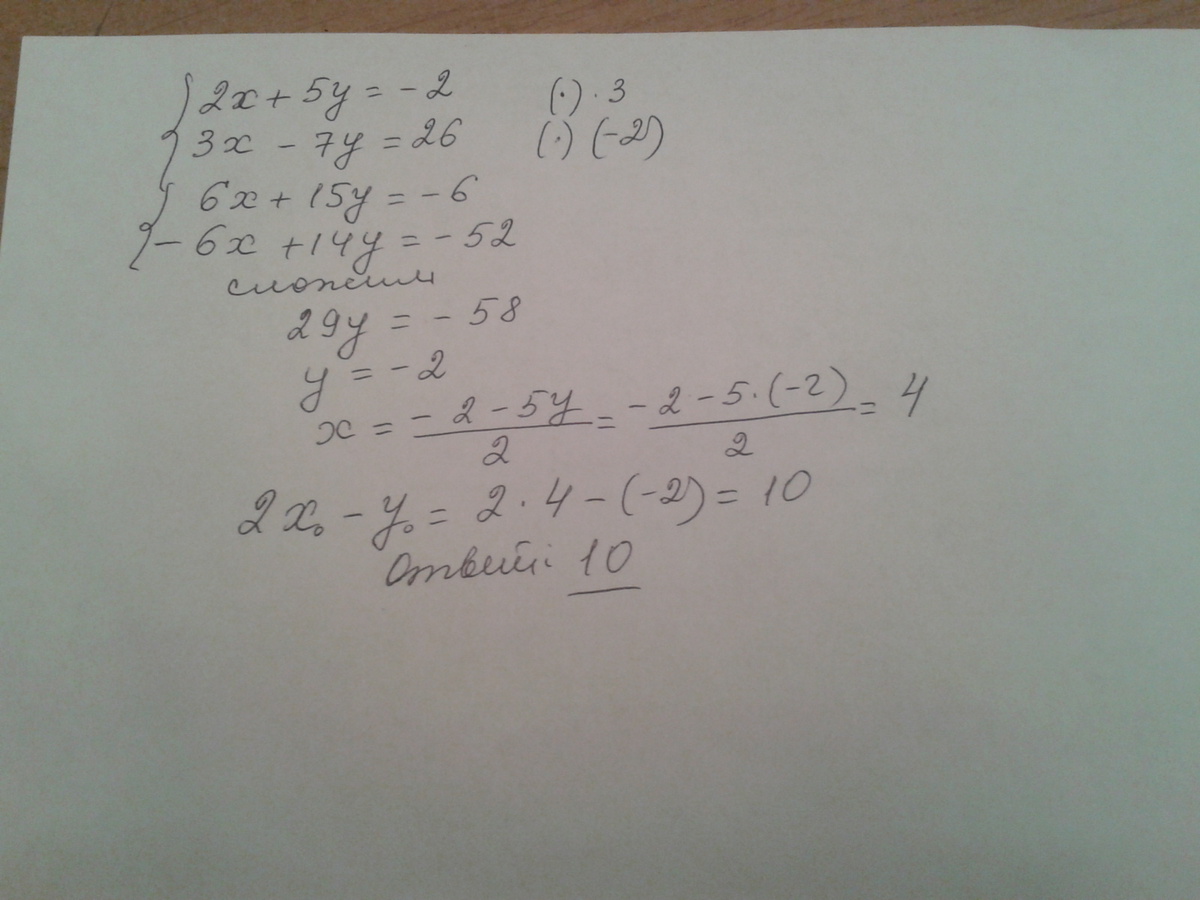 2x + 5y = -2 (·) · 3
3x - 7y = 26 (·) (-2)
6x + 15y = -6
-6x + 14y = -52
сложим
29y = -58
y = -2
x = (-2 - 5y)/2 = (-2 - 5·(-2))/2 = 4
2x₀ - y₀ = 2·4 - (-2) = 10
Ответ: 10